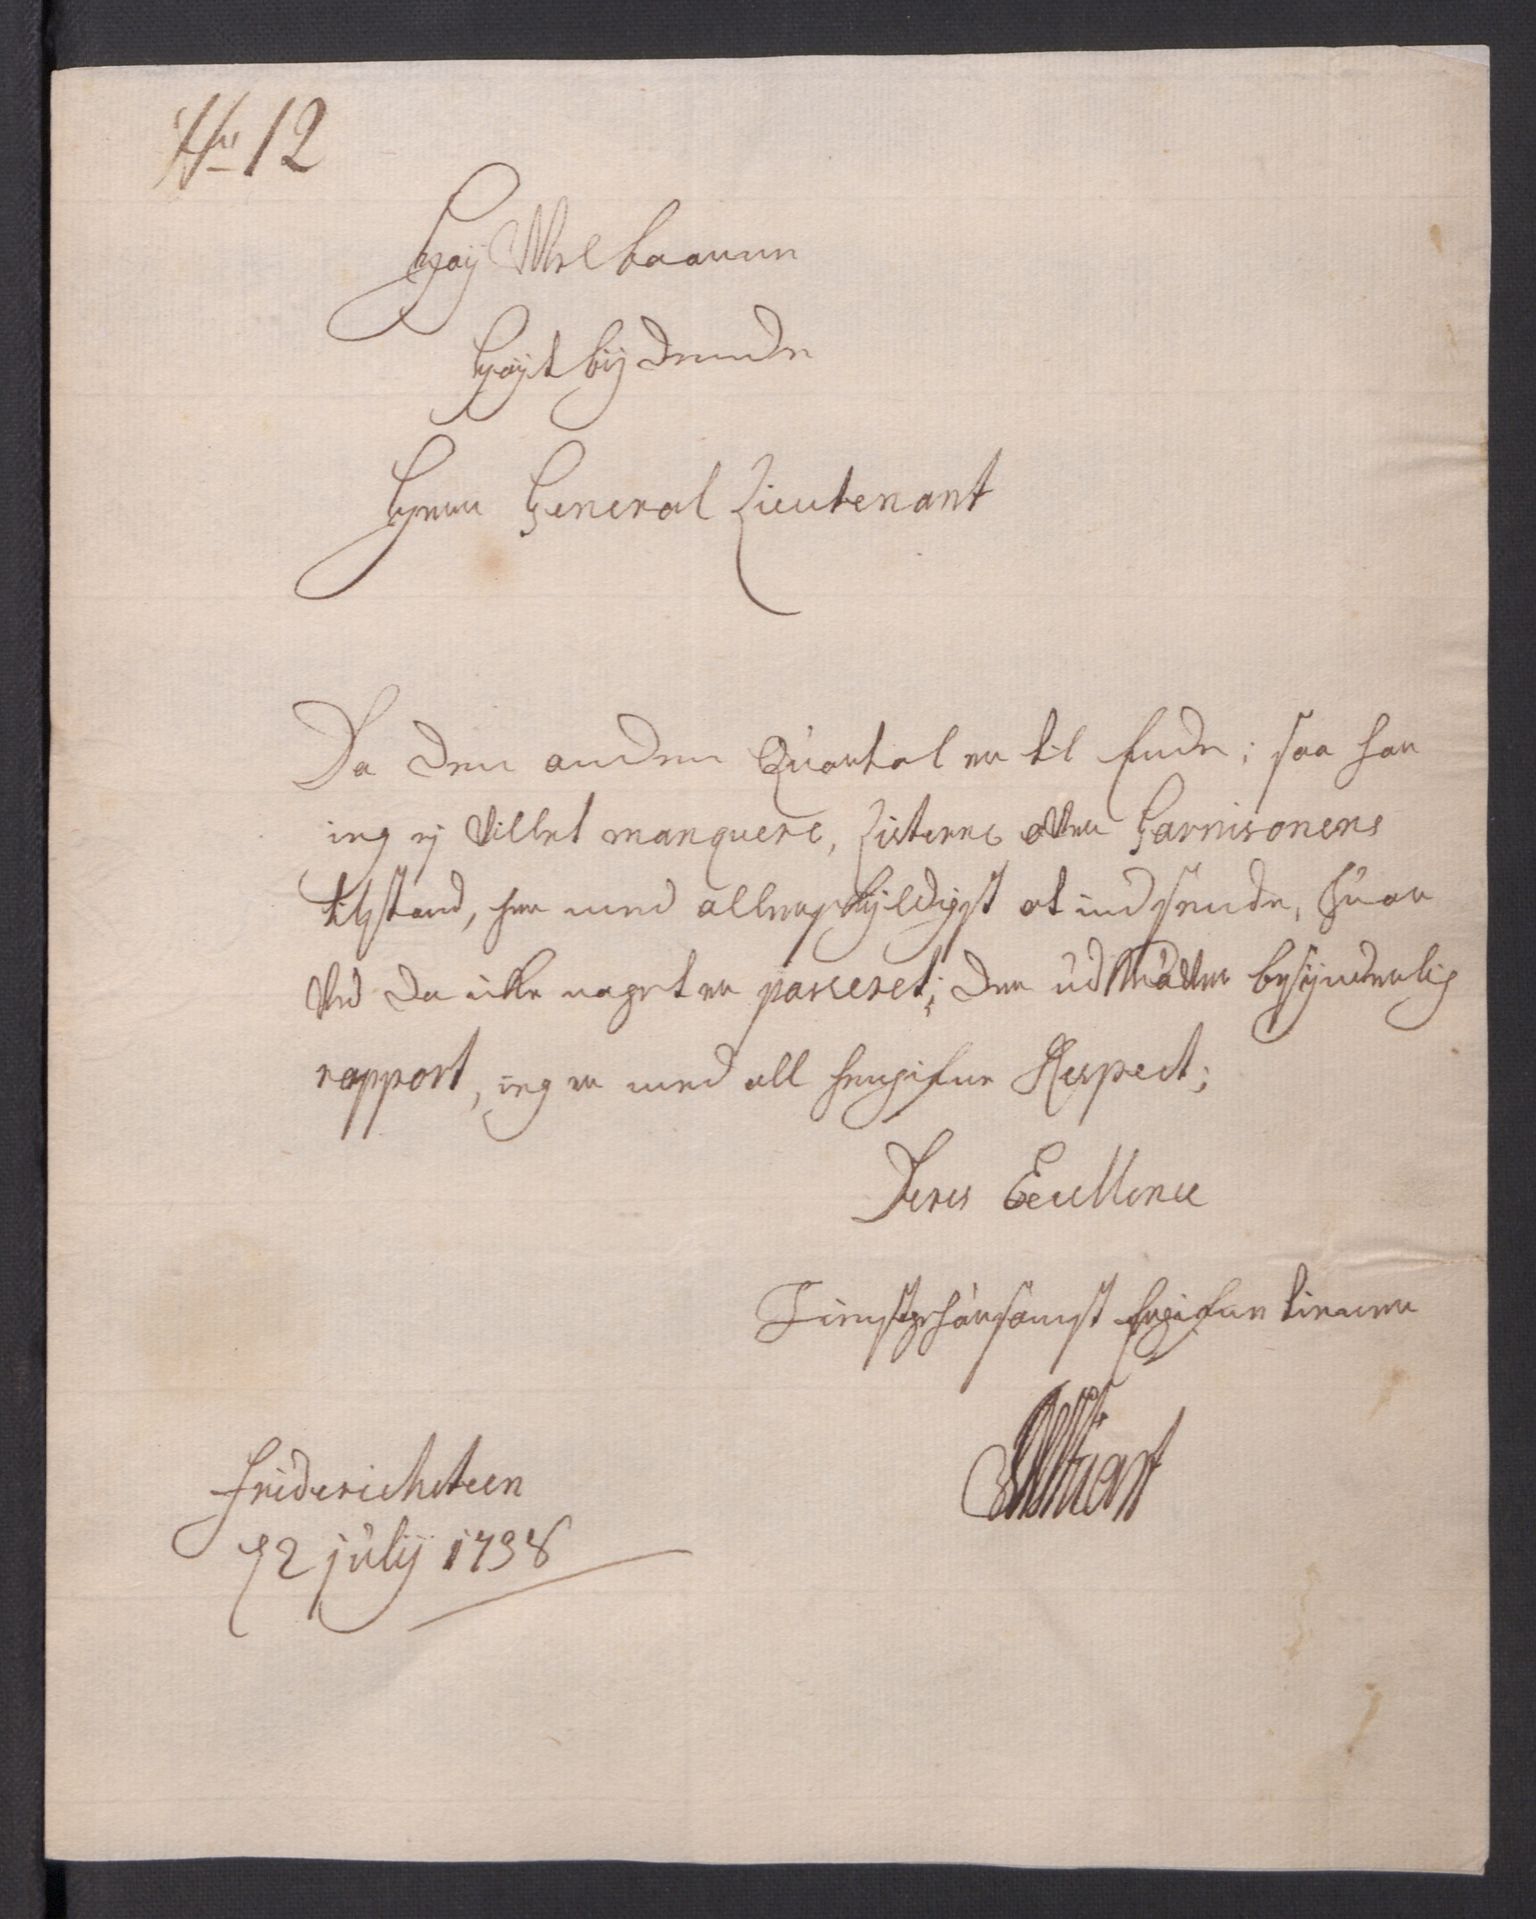 No 12
Høy Welbaarne
Høyt bÿdende
Herr General Lieutenant
Da den anden Quartal er til Ende; saa har
ieg ej villet manquere, Listerne over Garnisonens
tilstand, her med allerskÿldigst at indsende, hvor
ved da icke noget er passeret; der udkræver besÿnderlig
rapport, ieg er med all hengifne Respect;
Deres Excellence
hengifne tiener
Friderichsteen
12 julij 1738